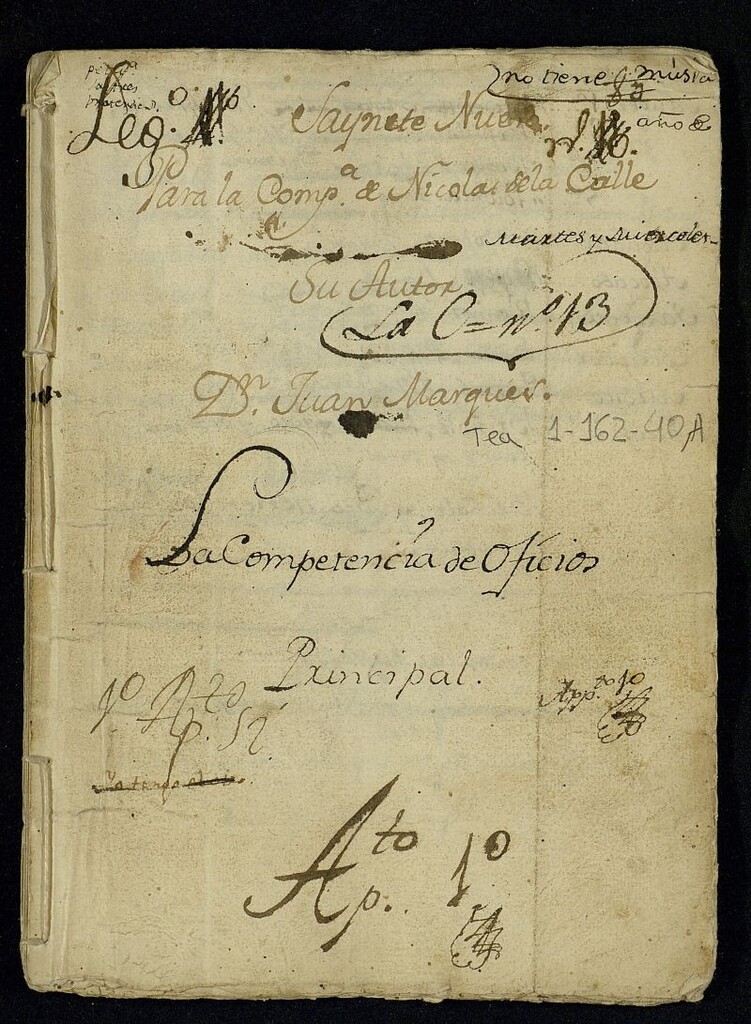 no tiene musica
Leg.º
Saynete Nuevo
año de
Para la Comp.ª de Nicolas de la Calle
Martes y Miercoles
Su Autor
La C = nº 13
Dn. Juan Marques.
Tea 1-162-40, A
La Competencia de Oficios
Principal.
1º Apto
App.to 1º
Ap.to 1º